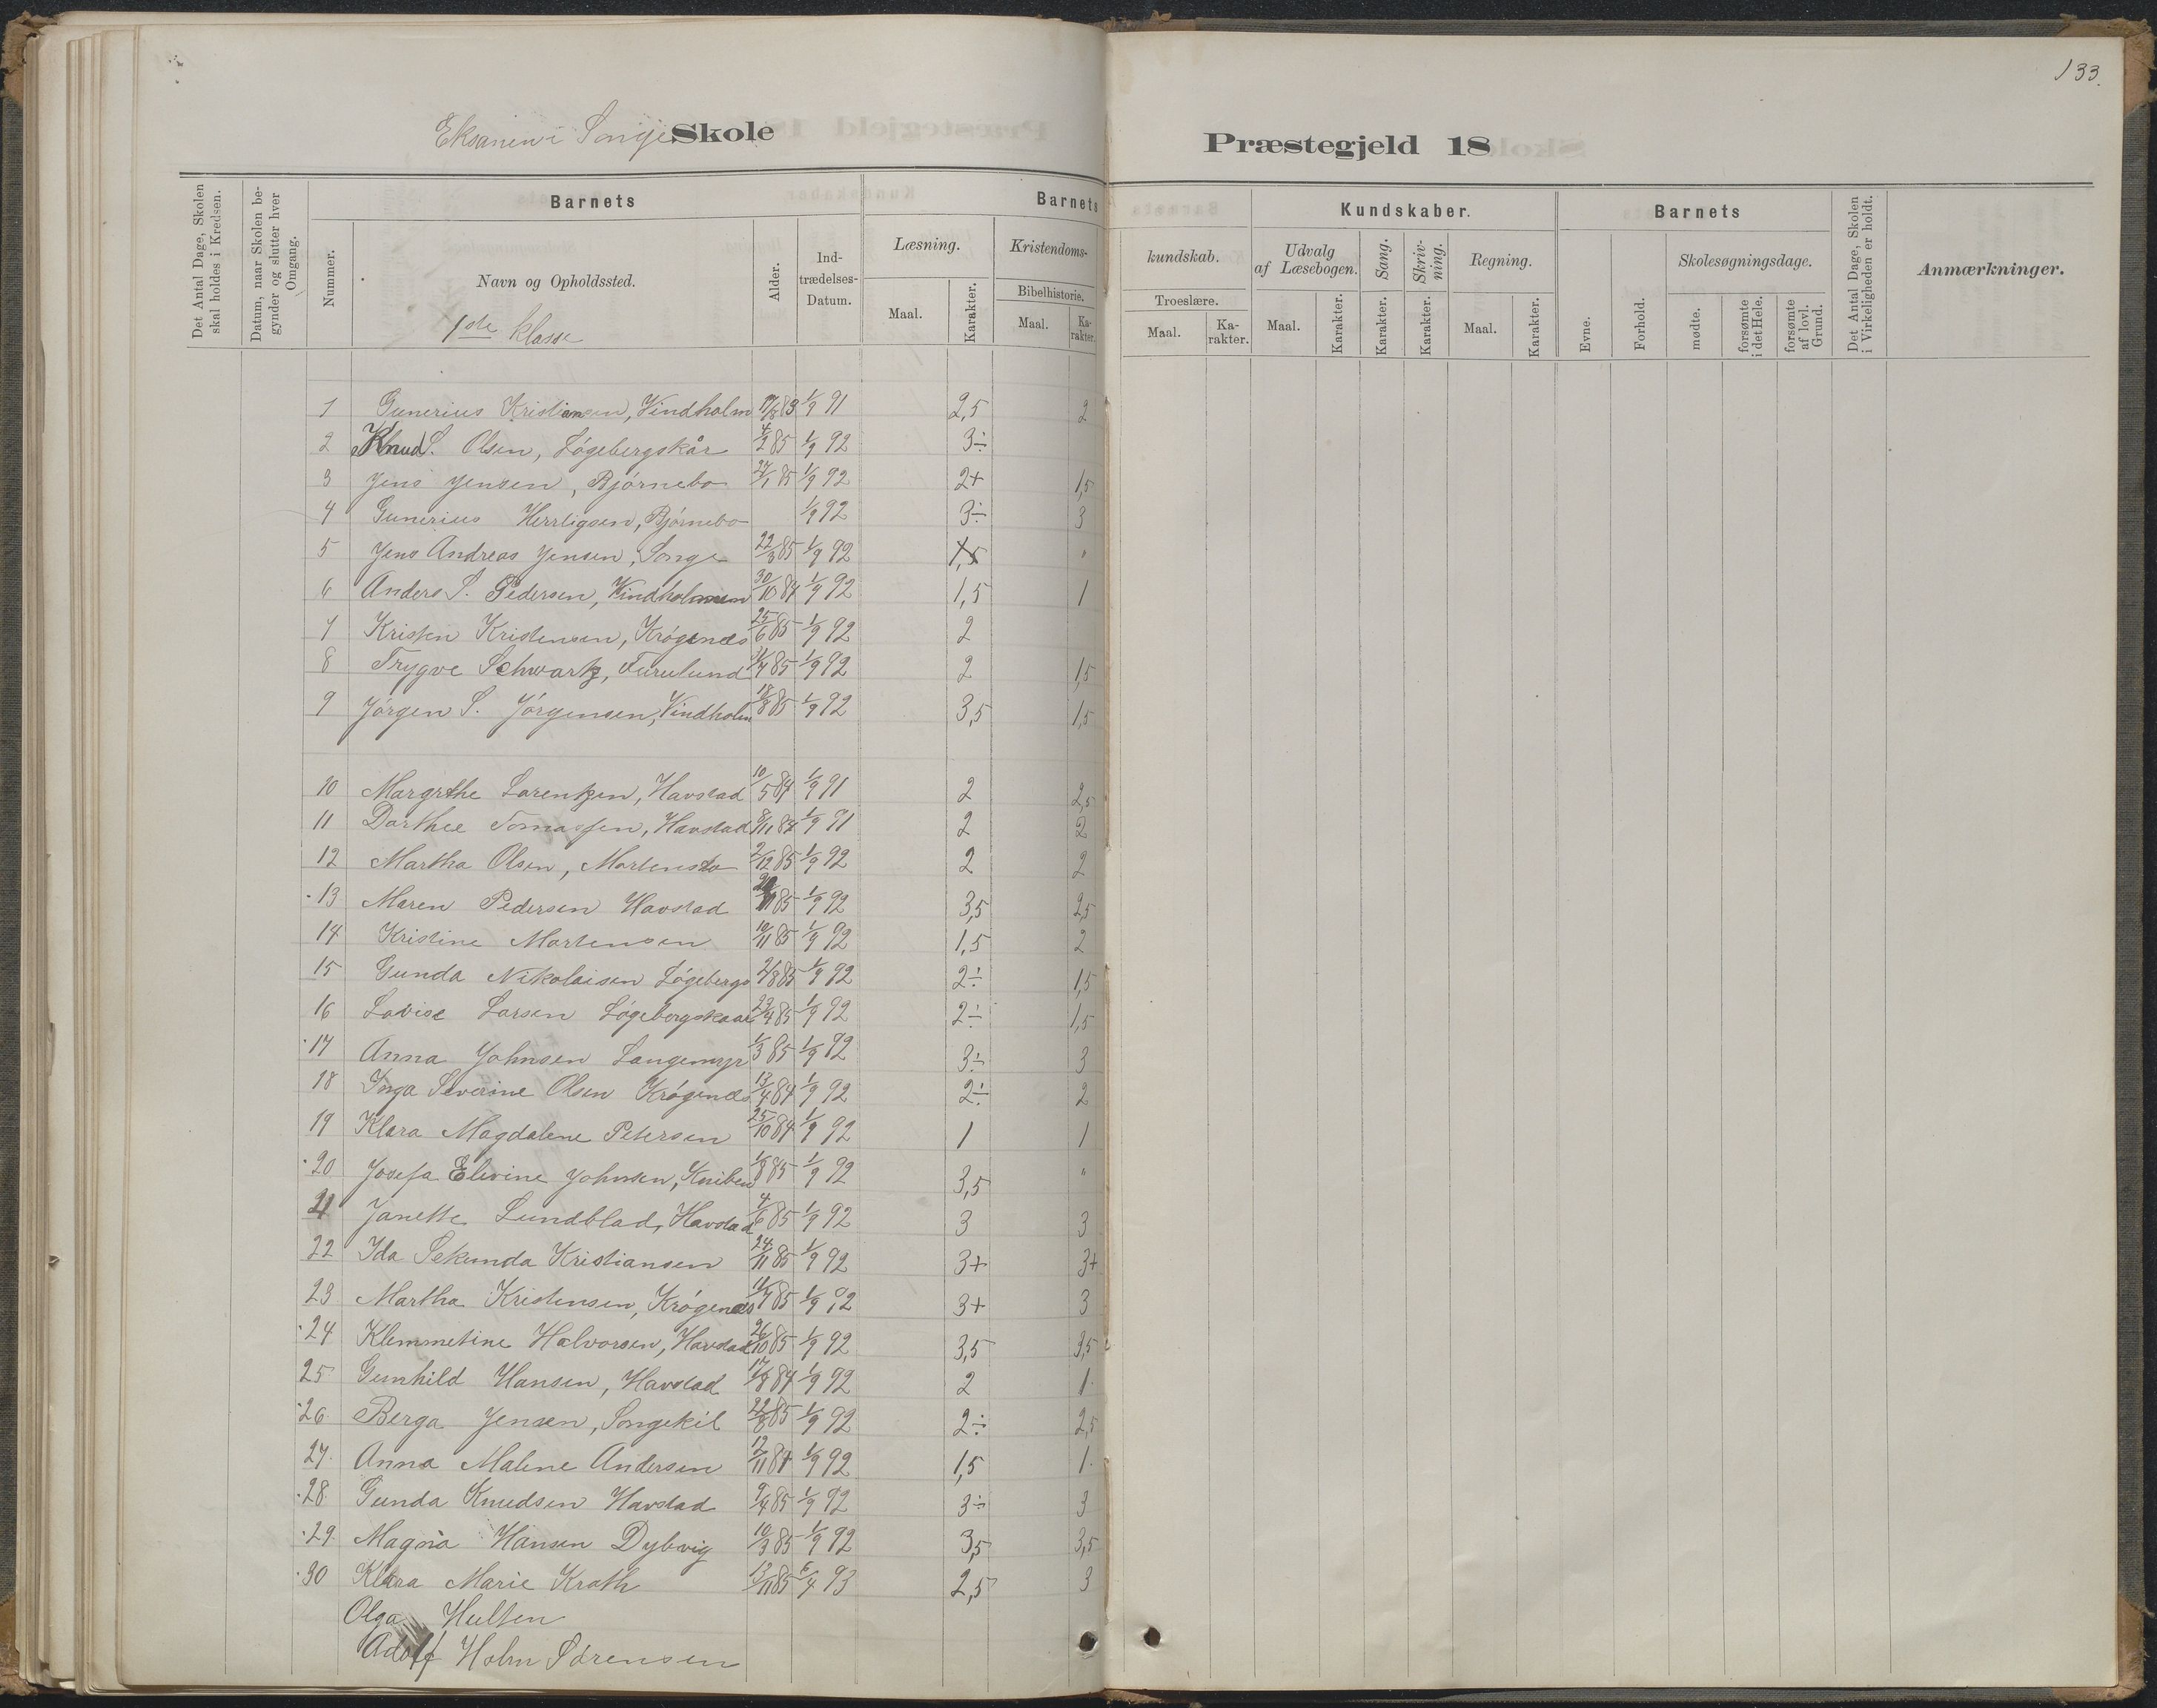 133.
Eksamen i Songe Skole
Præstegjeld 18
Det Antal Dage, Skolen skal holdes i Kredsen.
Datum, naar Skolen begynder og slutter hver Omgang.
Barnets
Nummer.
Navn og Opholdssted.
1ste Klasse
Alder.
Indtrædelses-Datum.
Barnets
Læsning.
Maal.
Karakter.
Kristendoms-
Bibelhistorie.
Maal.
Karakter.
kundskab.
Troeslære.
Maal.
Karakter.
Kundskaber.
Udvalg af Læsebogen.
Maal.
Karakter.
Sang.
Karakter.
Skrivning.
Karakter.
Regning.
Maal.
Karakter.
Barnets
Evne.
Forhold.
Skolesøgningsdage.
mødte.
forsømte i det Hele.
forsømte af lovl. Grund.
Det Antal Dage, Skolen i Virkeligheden er holdt.
Anmærkninger.
1 Gunerius Kristiansen, Vindholm 17/8 83 1/9 91 2,5 2
2 Knud S. Olsen, Løgebergskår 4/2 85 1/9 92 3÷
3 Jens Jensen, Bjørnebo 24/1 85 1/9 92 2+ 1,5
4 Gunerius Herrligsen, Bjørnebo 1/9 92 3÷ 3
5 Jens Andreas Jensen, Songe 22/3 85 1/9 92 1,5 "
6 Anders S. Pedersen, Vindholmen 30/10 84 1/9 92 1,5 1
7 Kristen Kristensen, Krøgenæs 25/6 85 1/9 92 2
8 Trygve Schwartz, Furulund 85 1/9 92 2 1,5
9 Jørgen S. Jørgensen, Vindholm 18/8 85 1/9 92 3,5 1,5
10 Margrthe Lorentzen, Havstad 10/5 84 1/9 91 2 2,5
11 Dorthee Tomassen, Havstad 8/11 84 1/9 91 2 2
12 Martha Olsen, Mortensbo 2/12 85 1/9 92 2 2
13 Maren Pedersen Havstad 85 1/9 92 3,5 2,5
14 Kristine Mortensen 10/11 85 1/9 92 1,5 2
15 Gunda Nikolaisen Løgebergs 2/8 85 1/9 92 2÷ 1,5
16 Lovise Larsen Løgebergskaar 23/9 85 1/9 92 2÷ 1,5
17 Anna Johnsen Langemyr 1/3 85 1/9 92 3÷ 3
18 Inga Severine Olsen Krøgenæs 13/4 84 1/9 92 2÷ 2
19 Klara Magdalene Petersen 25/10 84 1/9 92 1 1
20 Josefa Elevine Johnsen, Kniben 1/8 85 1/9 92 3,5 "
21 Janette Lundblad, Havstad 4/6 85 1/9 92 3 3
22 Ida Sekunda Kristiansen 24/11 85 1/9 92 3+ 3+
23 Martha Kristensen, Krøgenæs 11/7 85 1/9 92 3+ 3
24 Klemmetine Halvorsen, Havstad 26/10 85 1/9 92 3,5 3,5
25 Gunhild Hansen, Havstad 17/8 84 1/9 92 2 1
26 Berga Jensen, Songekil 22/8 85 1/9 92 2÷ 2,5
27 Anna Malene Andersen 12/11 84 1/9 92 1,5 1
28 Gunda Knudsen Havstad 9/4 85 1/9 92 3÷ 3
29 Magna Hansen Dybvig 10/3 85 1/9 92 3,5 3,5
30 Klara Marie Kroth 13/11 85 6/4 93 2,5 3
Olga Hulten
Adolf Holm Sørensen